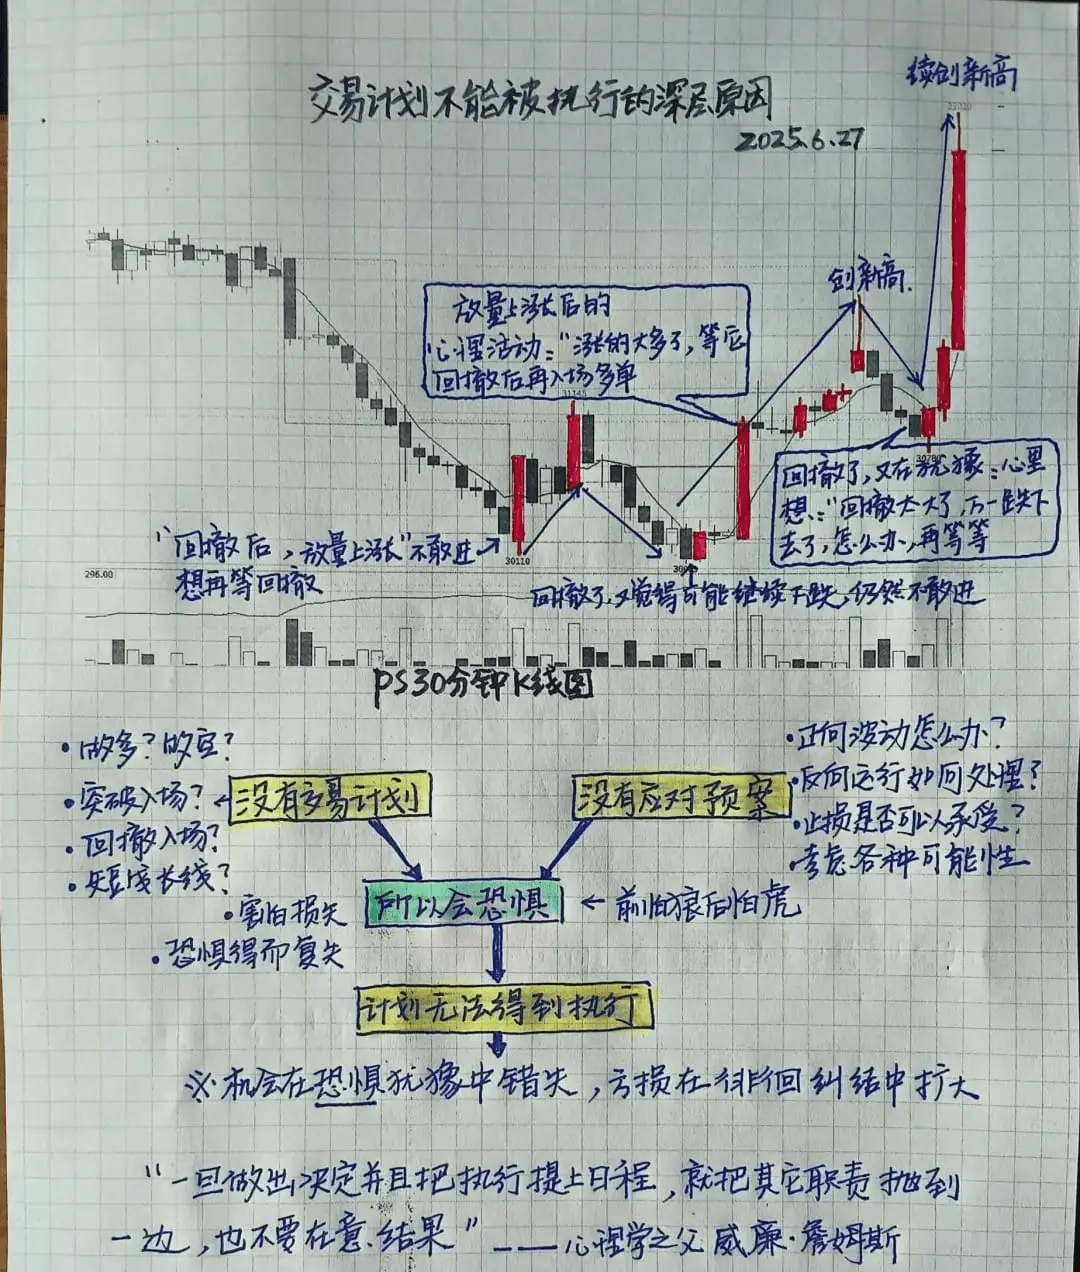 续创新高
交易计划不能被执行的深层原因
2025.6.27
创新高.
放量上涨后的
心理活动:“涨的太多了,等后
回撤后再入场多单
31145
回撤了,又在犹豫:心里
想:“回撤太大了,万一跌下
去了,怎么办,再等等
30780
“回撤后,放量上涨”不敢进
想再等回撤
30110
回撤了,又觉得可能继续下跌,仍然不敢进
295.00
PS30分钟K线图
·做多?做空?
·突破入场?
·回撤入场?
·短线长线?
没有交易计划
没有应对预案
·正向波动怎么办?
·反向运行如何处理?
·止损是否可以承受?
·考虑各种可能性
所以会恐惧
前怕狼后怕虎
·害怕损失
·恐惧得而复失
计划无法得到执行
※机会在恐惧犹豫中错失,亏损在徘徊纠结中扩大
“一旦做出决定并且把执行提上日程,就把其它职责抛到
一边,也不要在意.结果”——心理学之父 威廉·詹姆斯